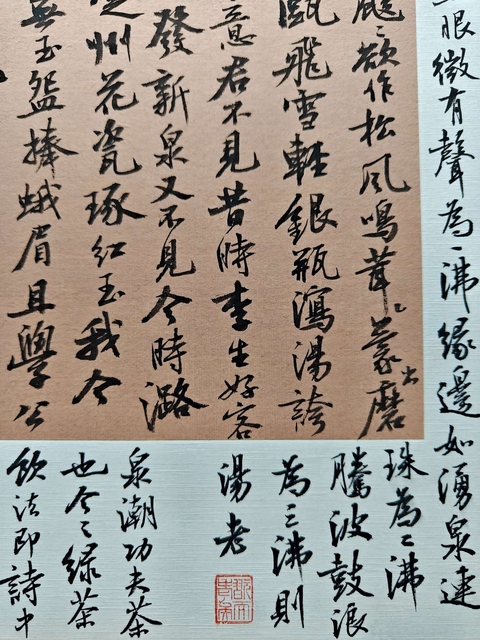 颼〻欲作松風鳴茸蒙出磨
甌飛雪輕銀瓶瀉湯誇
意君不見昔時李生好客
發新泉又不見今時潞
州花瓷琢紅玉我今
無玉盌捧蛾眉且學公
眼微有聲為一沸緣邊如湧泉連
珠為二沸
騰波鼓浪
為三沸則
湯老
泉潮功夫茶
也今之綠茶
飲法即詩中